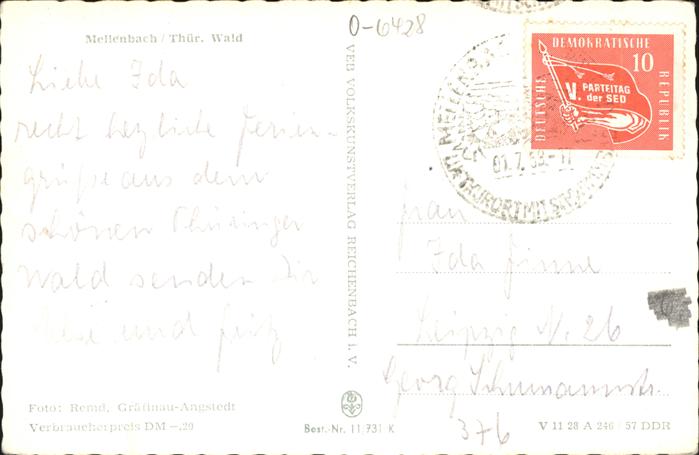 0-6428
Mellenbach / Thür. Wald
Liebe Ida
recht herzliche Ferien-
grüße aus dem
schönen Thüringer
Wald senden Dir
und Fritz
Foto: Remd, Gräfinau-Angstedt
Verbraucherpreis DM -,20
VEB VOLKSKUNSTVERLAG REICHENBACH I. V.
Best.-Nr. 11/731 K
DEUTSCHE DEMOKRATISCHE REPUBLIK
10
V. PARTEITAG
der SED
Frau
Ida
Leipzig N. 26
Georg Schumannstr.
376
V 11 28 A 246 / 57 DDR